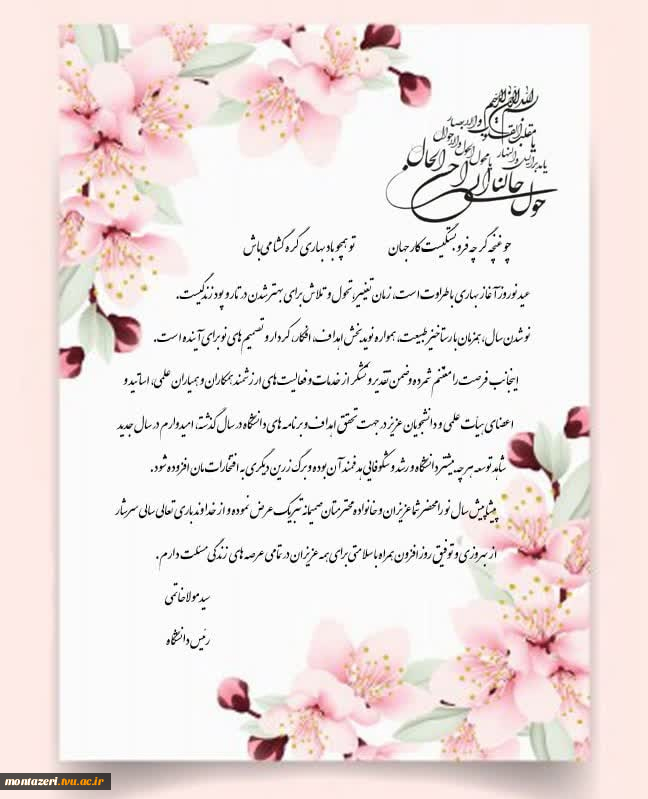 بسم الله الرحمن الرحیم
یا مقلب القلوب والابصار
یا مدبر اللیل والنهار
یا محول الحول والاحوال
حول حالنا الی احسن الحال
چو غنچه گرچه فروبستگیست کار جهان تو همچو باد بهاری گره گشا می باش
عید نوروز آغاز بهاری با طراوت است، زمان تغییر، تحول و تلاش برای بهتر شدن در تار و پود زندگیست.
نو شدن سال، همزمان با رستاخیز طبیعت، همواره نوید بخش اهداف، افکار، کردار و تصمیم های نو برای آینده است.
اینجانب فرصت را مغتنم شمرده و ضمن تقدیر و تشکر از خدمات و فعالیت های ارزشمند همکاران و همیاران علمی، اساتید و
اعضای هیأت علمی و دانشجویان عزیز در جهت تحقق اهداف و برنامه های دانشگاه در سال گذشته، امیدوارم در سال جدید
شاهد توسعه هر چه بیشتر دانشگاه و رشد و شکوفایی هدفمند آن بوده و برگ زرین دیگری به افتخارات مان افزوده شود.
پیشاپیش سال نو را محضر شما عزیزان و خانواده محترمتان صمیمانه تبریک عرض نموده و از خداوند باری تعالی سالی سرشار
از بهروزی و توفیق روز افزون همراه با سلامتی برای همه عزیزان در تمامی عرصه های زندگی مسئلت دارم.
سید مولا خاتمی
رئیس دانشگاه
montazeri.tvu.ac.ir